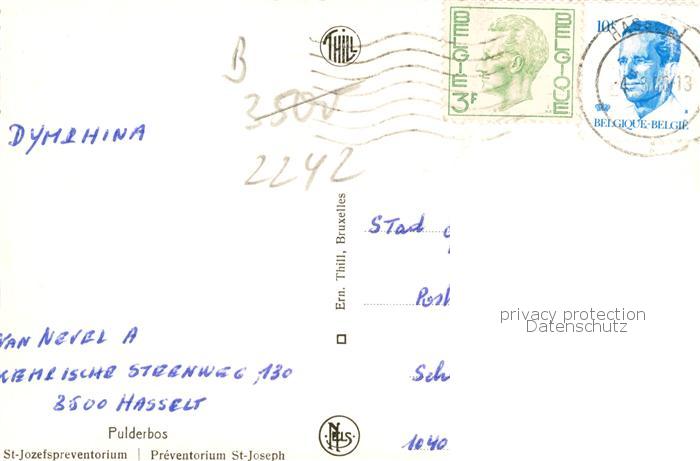 THILL
BELGIË BELGIQUE
3F
10F
HASSELT
13
BELGIQUE-BELGIË
B
3500
2242
DYMPHNA
Ern. Thill, Bruxelles
Stad
Post
privacy protection
Datenschutz
VAN NEVEL A
STEENWEG, 130
3500 HASSELT
Sch
1040
Pulderbos
NELS
St-Jozefspreventorium | Préventorium St-Joseph